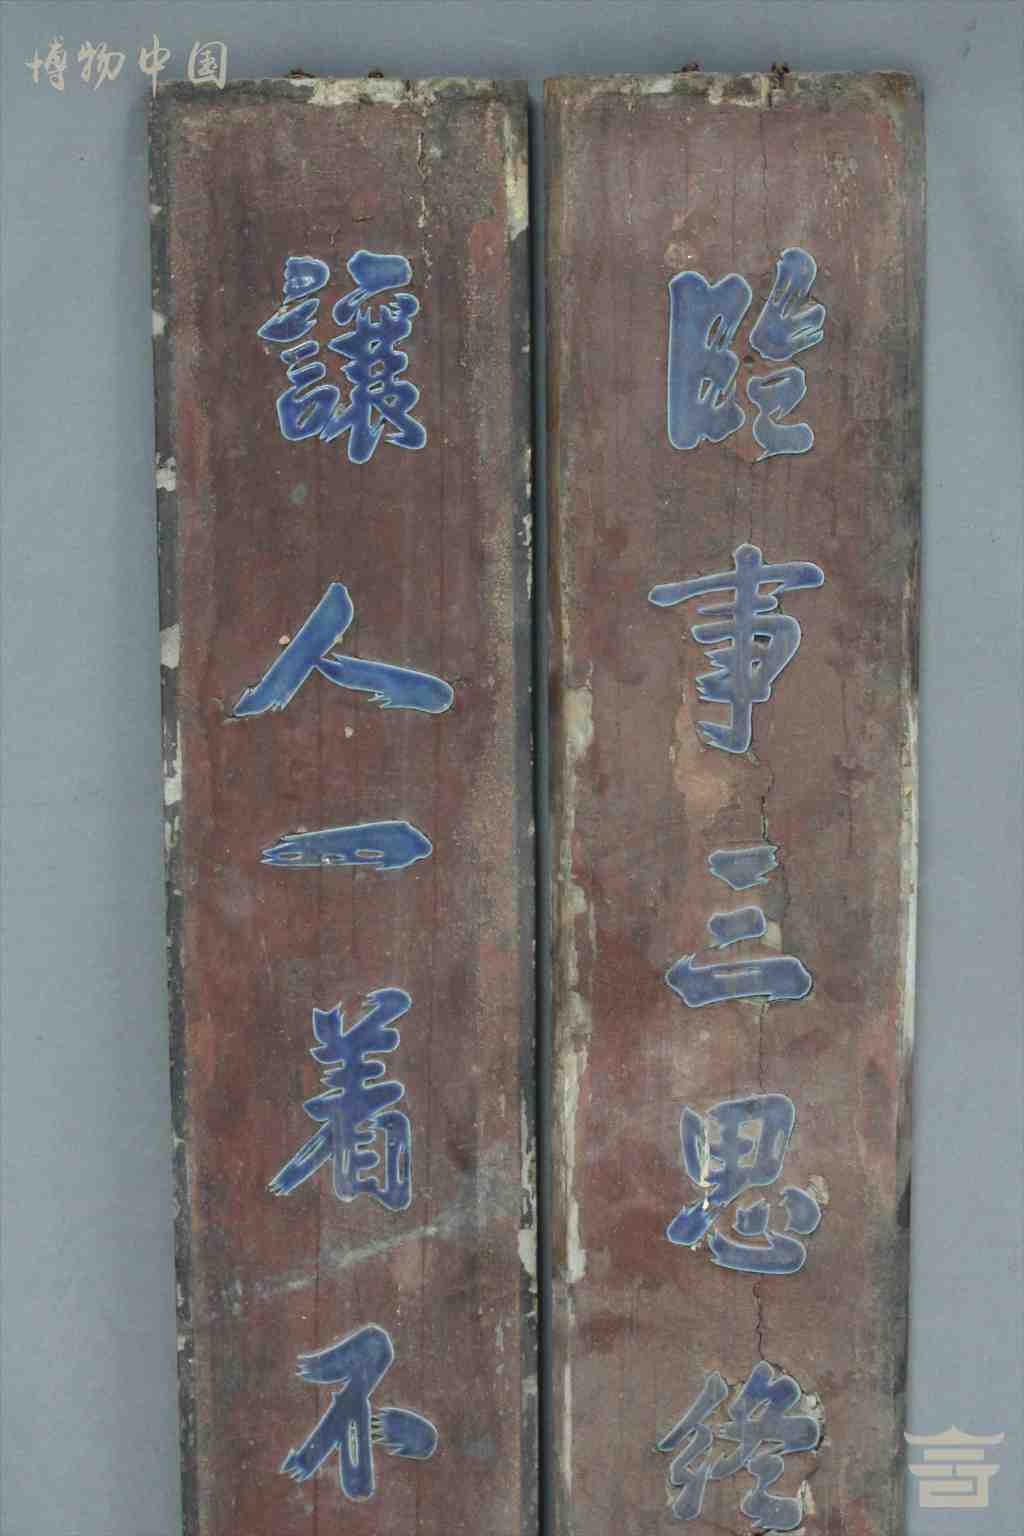 博物中国
臨事三思終
讓人一着不